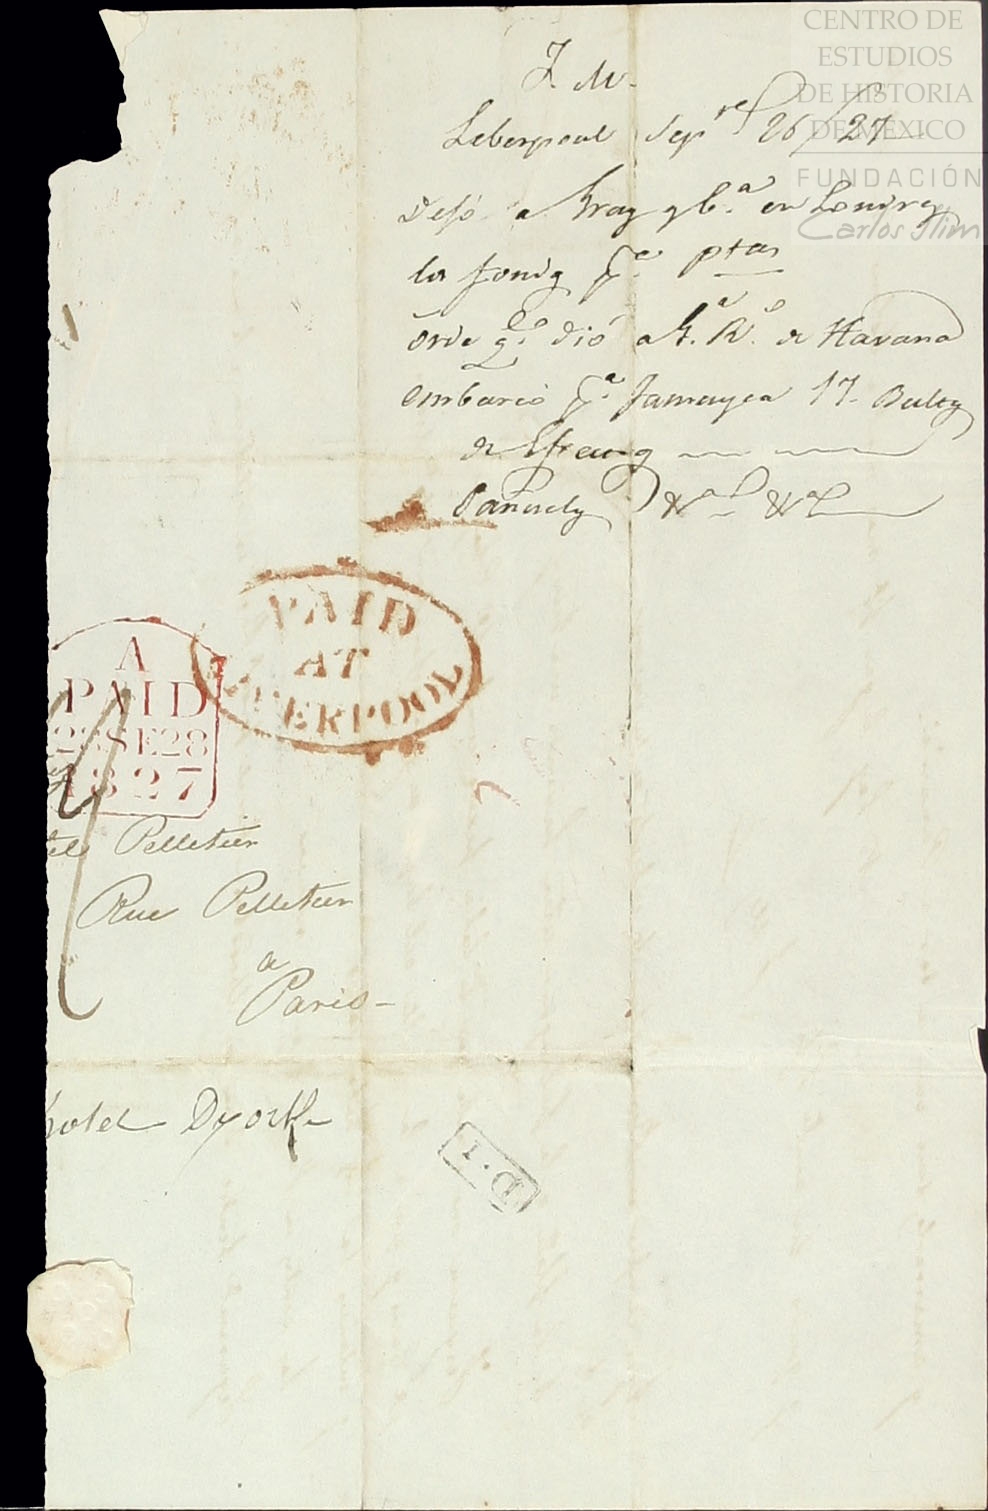 CENTRO DE
ESTUDIOS
DE HISTORIA
DE MÉXICO
FUNDACIÓN
Carlos Slim
J. M.
Leberpool Sepre 26/27
Dejó a Gray y Ca. en Londres
los fondos pa. ptas
orde qe. dió a G. Ro. de Havana
embarco pa. Jamayca 17. Bultos
de
PAID
AT
LIVERPOOL
A
PAID
28 SE 28
1827
tel Pelletier
Rue Pelletier
a
Paris
hotel Dyork
D.1